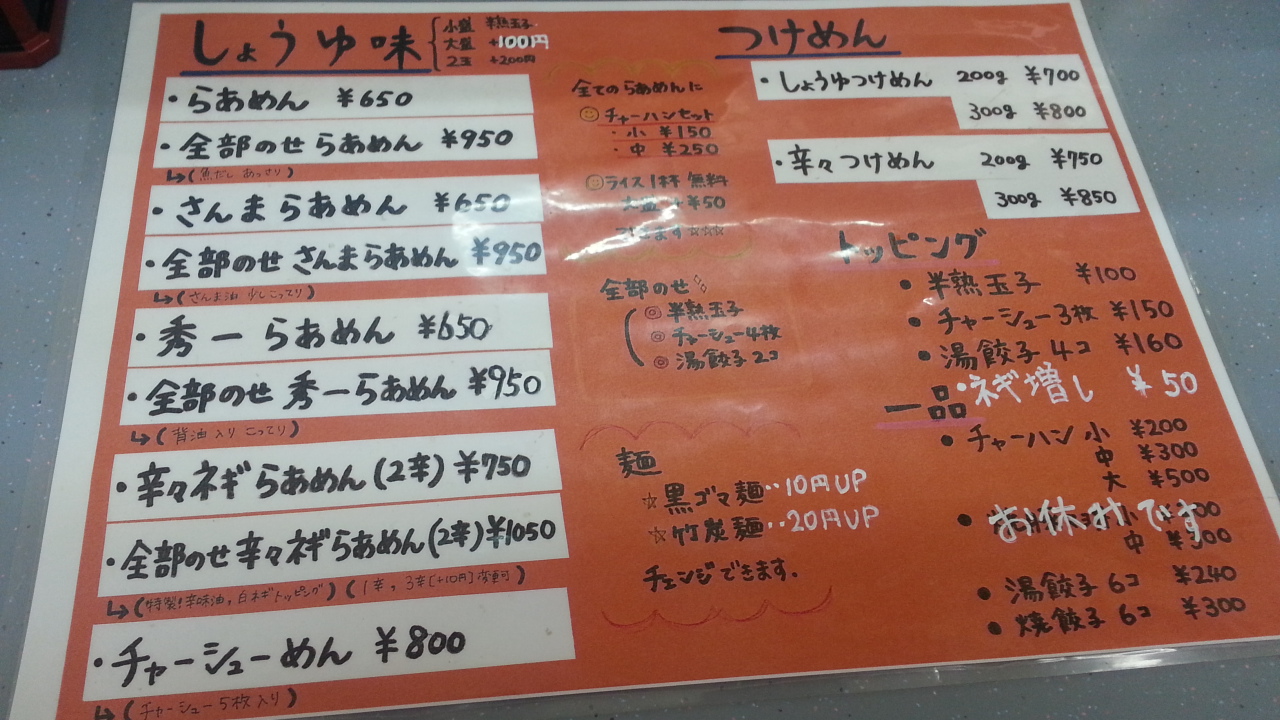 しょうゆ味
小盛 半熟玉子
大盛 +100円
2玉 +200円
・らあめん ¥650
・全部のせらあめん ¥950
↳(魚だし あっさり)
・さんまらあめん ¥650
・全部のせ さんまらあめん ¥950
↳(さんま油 少しこってり)
・秀一らあめん ¥650
・全部のせ 秀一らあめん ¥950
↳(背油入り こってり)
・辛々ネギらあめん(2辛) ¥750
・全部のせ辛々ネギらあめん(2辛) ¥1050
↳(特製!辛味油, 白ネギトッピング)(1辛, 3辛[+10円]変更可)
・チャーシューめん ¥800
↳(チャーシュー5枚入り)
全てのらあめんに
チャーハンセット
・小 ¥150
・中 ¥250
ライス1杯 無料
大盛 +¥50
できます☆☆☆
全部のせ
◎半熟玉子
◎チャーシュー4枚
◎湯餃子2コ
麺
☆黒ゴマ麺‥10円UP
☆竹炭麺‥20円UP
チェンジできます.
つけめん
・しょうゆつけめん 200g ¥700
300g ¥800
・辛々つけめん 200g ¥750
300g ¥850
トッピング
・半熟玉子 ¥100
・チャーシュー3枚 ¥150
・湯餃子4コ ¥160
・ネギ増し ¥50
一品
・チャーハン 小 ¥200
中 ¥300
大 ¥500
お休みです
中 ¥300
・湯餃子 6コ ¥240
・焼餃子 6コ ¥300